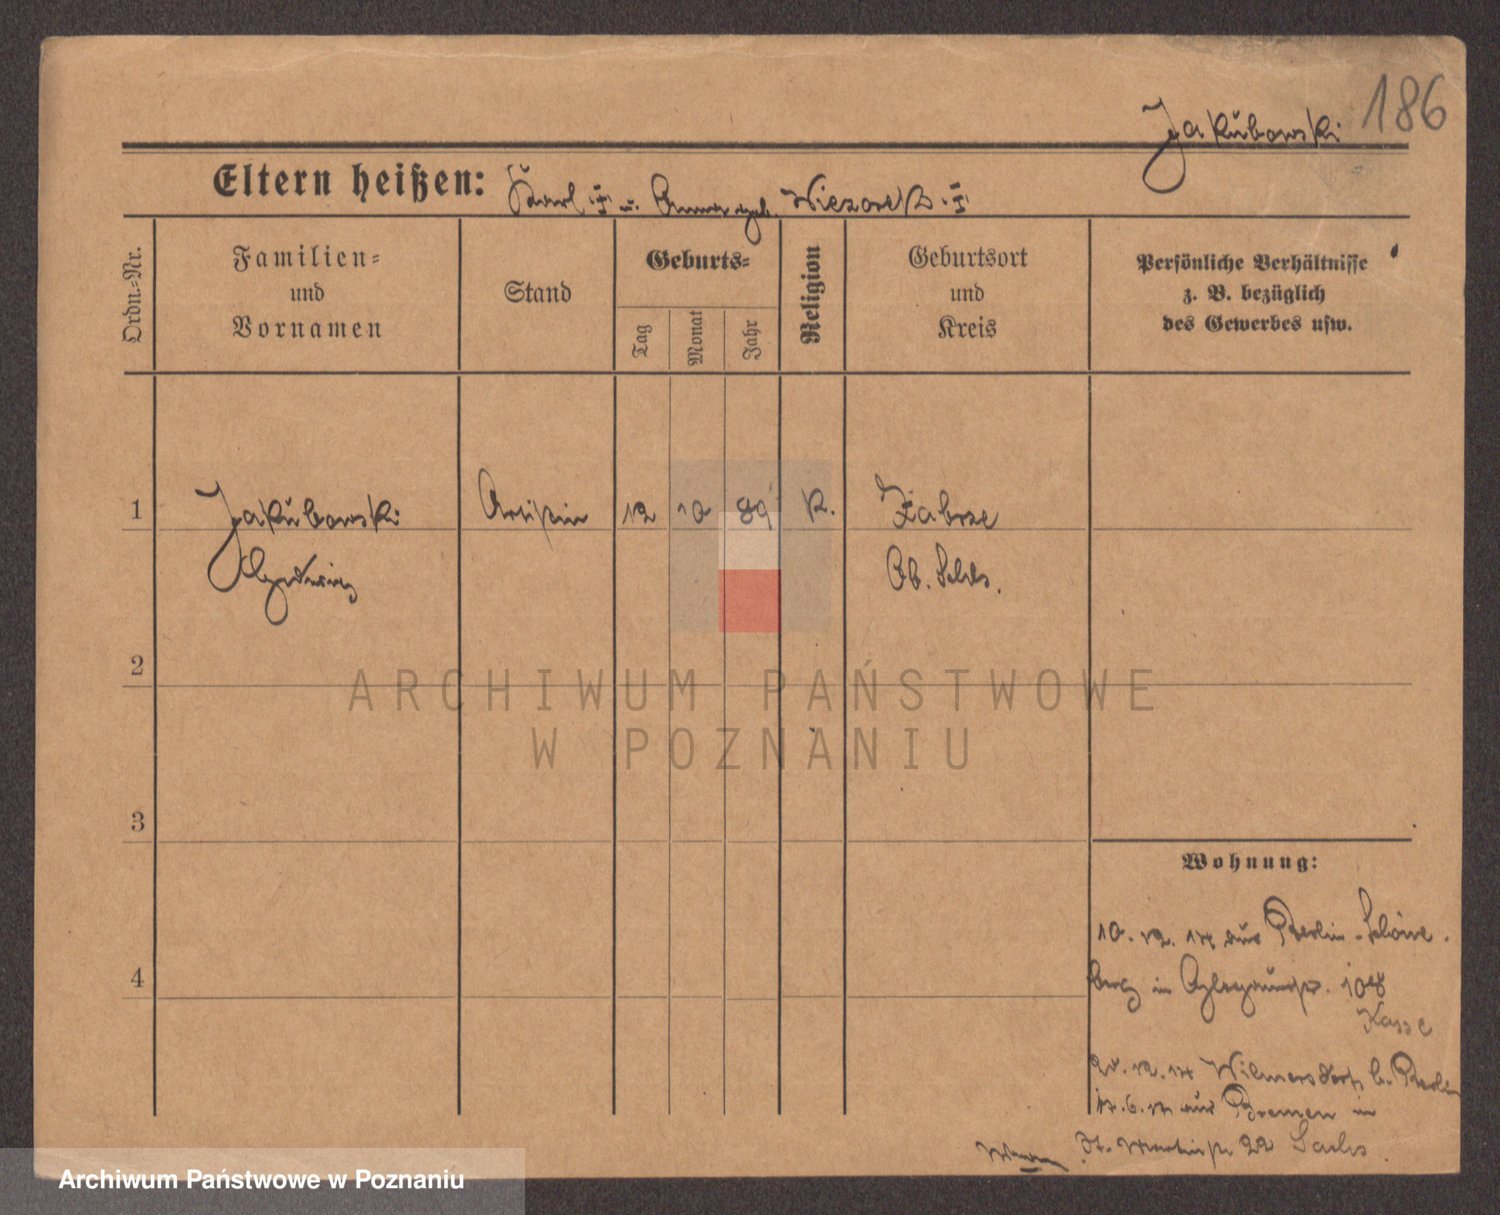 186
Jakubowski
Eltern heißen: Karl † u. Anna geb. Wiezorek †
Ordn.-Nr.
Familien-
und
Vornamen
Stand
Geburts-
Tag
Monat
Jahr
Religion
Geburtsort
und
Kreis
Persönliche Verhältnisse
z. B. bezüglich
des Gewerbes usw.
1
Jakubowski
Artistin
12
10
89
K.
Zabrze
Ob. Schles.
2
3
4
Wohnung:
10. 12. 14 aus Berlin-Schöne-
berg in 108
Kasse
12. 14 Wilmersdorf b. Berlin
6. 17 aus Bremen in
St. Martinstr. 22 Sachs
ARCHIWUM PAŃSTWOWE
W POZNANIU
Archiwum Państwowe w Poznaniu